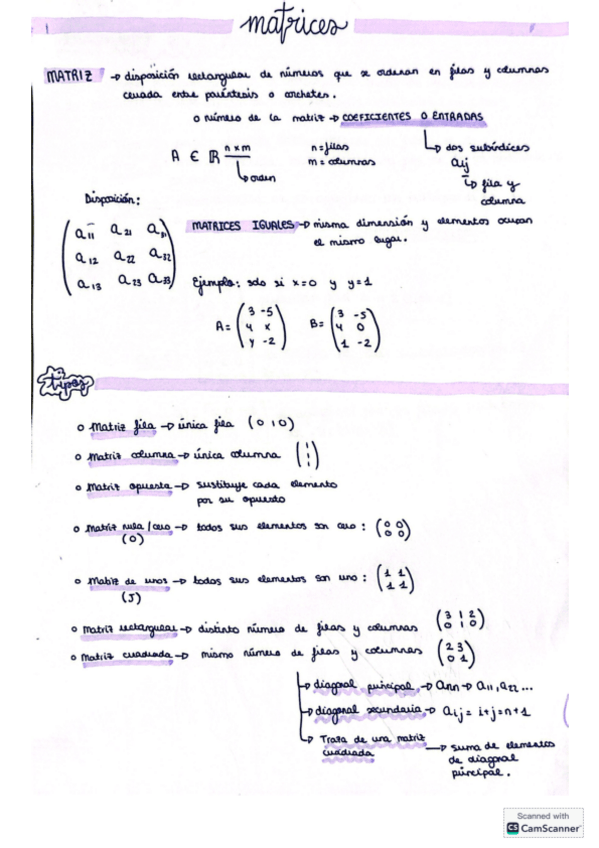 matrices
MATRIZ → disposición rectangular de números que se ordenan en filas y columnas
cerrada entre paréntesis o corchetes.
o número de la matriz → COEFICIENTES O ENTRADAS
A ∈ ℝ n×m
n=filas
m=columnas
orden
dos subíndices
aij
fila y
columna
Disposición:
a11 a21 a31
a12 a22 a32
a13 a23 a33
MATRICES IGUALES → misma dimensión y elementos ocupan
el mismo lugar.
Ejemplo: solo si x=0 y y=1
A= (3 -5
4 x
y -2)
B= (3 -5
4 0
1 -2)
tipos
o Matriz fila → única fila (0 1 0)
o Matriz columna → única columna (1
1
1)
o Matriz opuesta → sustituye cada elemento
por su opuesto
o Matriz nula/cero → todos sus elementos son cero: (0 0
0 0)
(0)
o Matriz de unos → todos sus elementos son uno: (1 1
1 1)
(J)
o Matriz rectangular → distinto número de filas y columnas (3 1 2
0 1 0)
o Matriz cuadrada → mismo número de filas y columnas (2 3
0 1)
diagonal principal → ann → a11, a22 ...
diagonal secundaria → aij = i+j=n+1
Traza de una matriz
cuadrada → suma de elementos
de diagonal
principal.
Scanned with
CS CamScanner